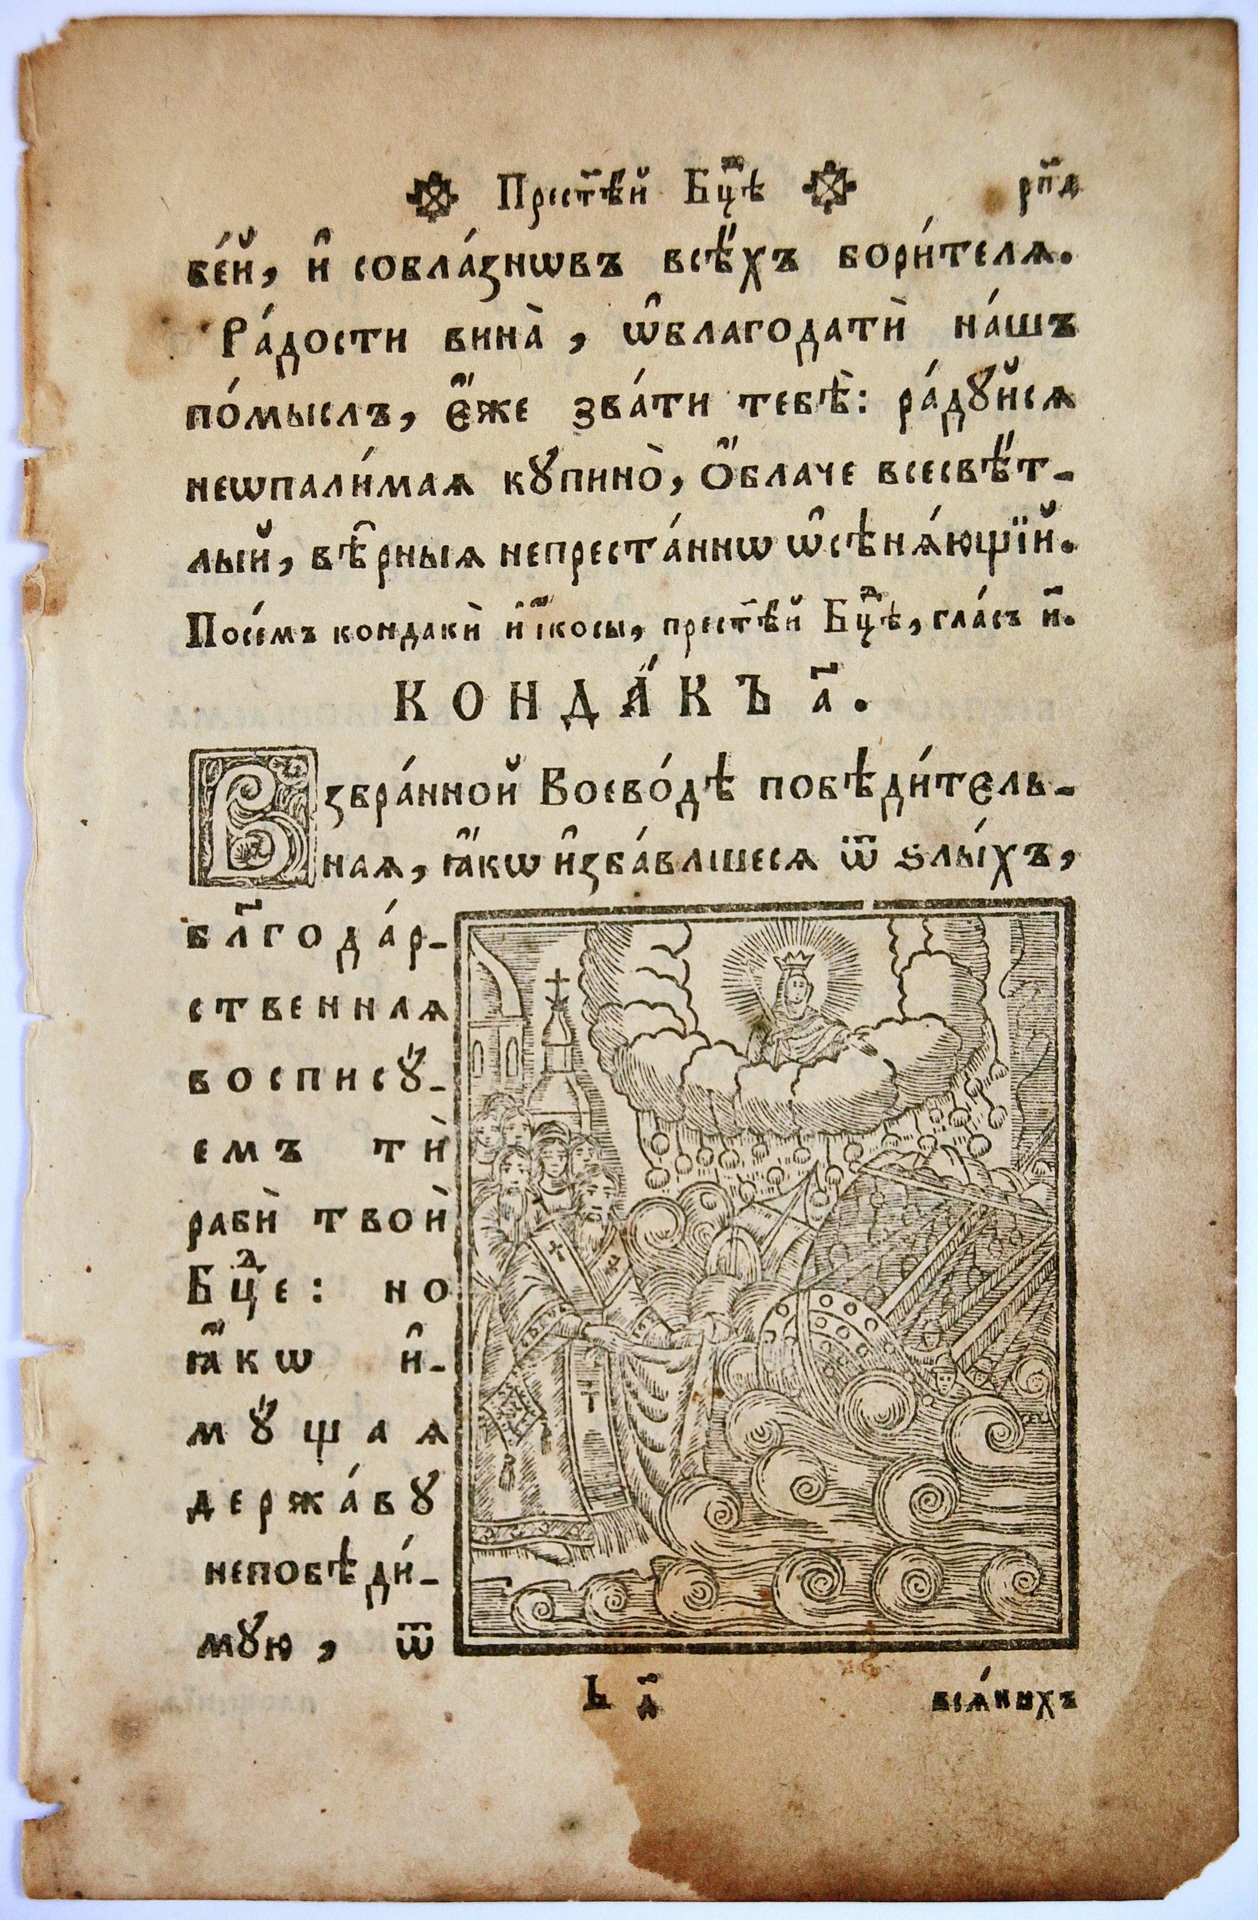 Прест҃ѣй Бцⷣѣ рп҃д
ве́й, и҆ собла́знѡвъ всѣ́хъ бори́телѧ.
Ра́дости вина̀, ѡ҆благодатѝ на́шъ
по́мыслъ, є҆́же зва́ти тебѣ̀: ра́дꙋйсѧ
неѡпали́маѧ кꙋпино̀, Ѻ҆́блаче всесвѣ́т-
лый, вѣ̑рныѧ непреста́ннѡ ѡ҆сѣнѧ́ющїй.
Посе́мъ кондакѝ и҆ і҆́косы, прест҃ѣй Бцⷣѣ, гла́съ и҃.
КОНДА́КЪ а҃.
Взбра́нной Воево́дѣ побѣди́тєль-
наѧ, ꙗ҆́кѡ и҆зба́вльшесѧ ѿ ѕлы́хъ,
бл҃года́р-
ственнаѧ
восписꙋ́-
емъ тѝ
рабѝ твоѝ
Бцⷣе: но
ꙗ҆́кѡ и҆-
мꙋ́щаѧ
держа́вꙋ
непобѣди́-
мꙋю, ѿ
Ь д҃ всѧ́кихъ